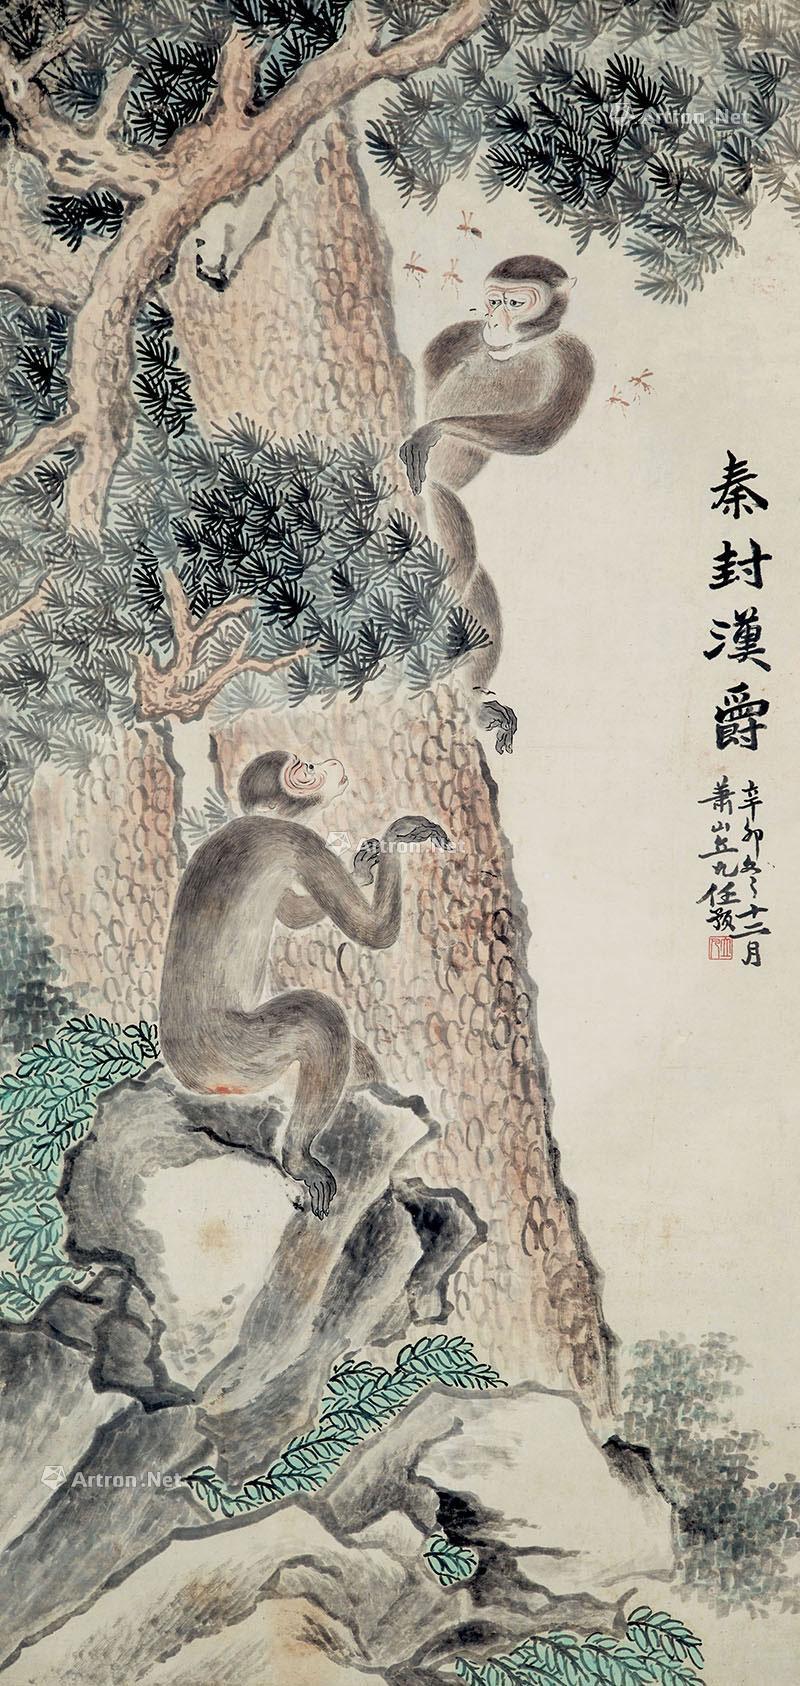 秦封漢爵
辛卯冬十二月
蕭山任頤
Artron.Net
Artron.Net
Artron.Net
Artron.Net